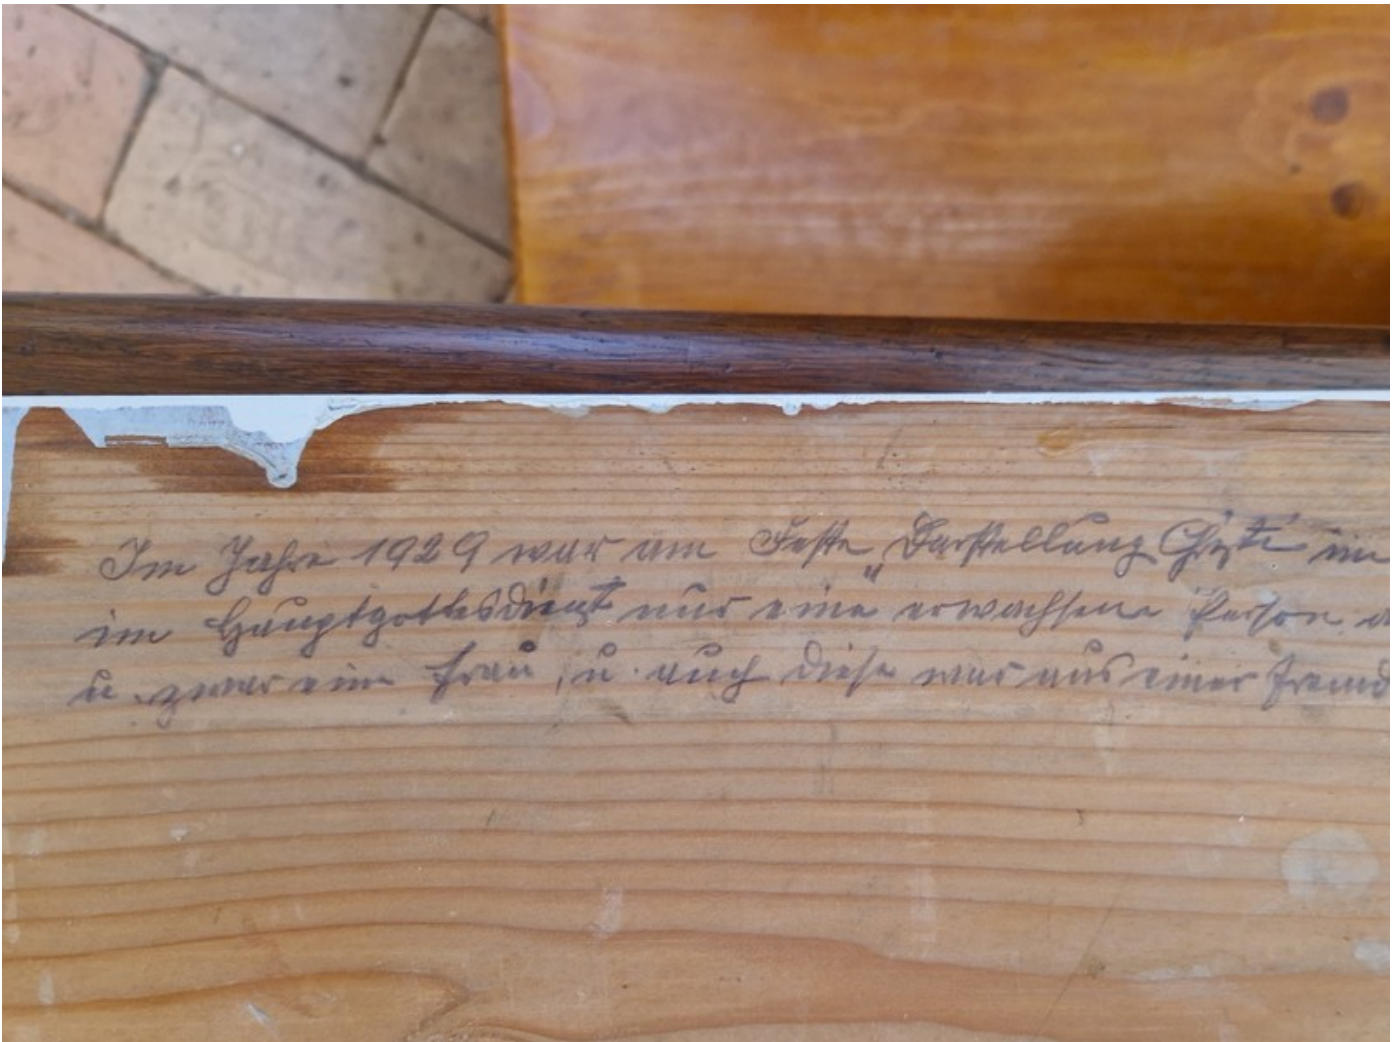 Im Jahre 1929 war am Feste „Darstellung Christi im
im Hauptgottesdienst nur eine erwachsene Person
u. zwar eine Frau, u. auch diese war aus einer fremd